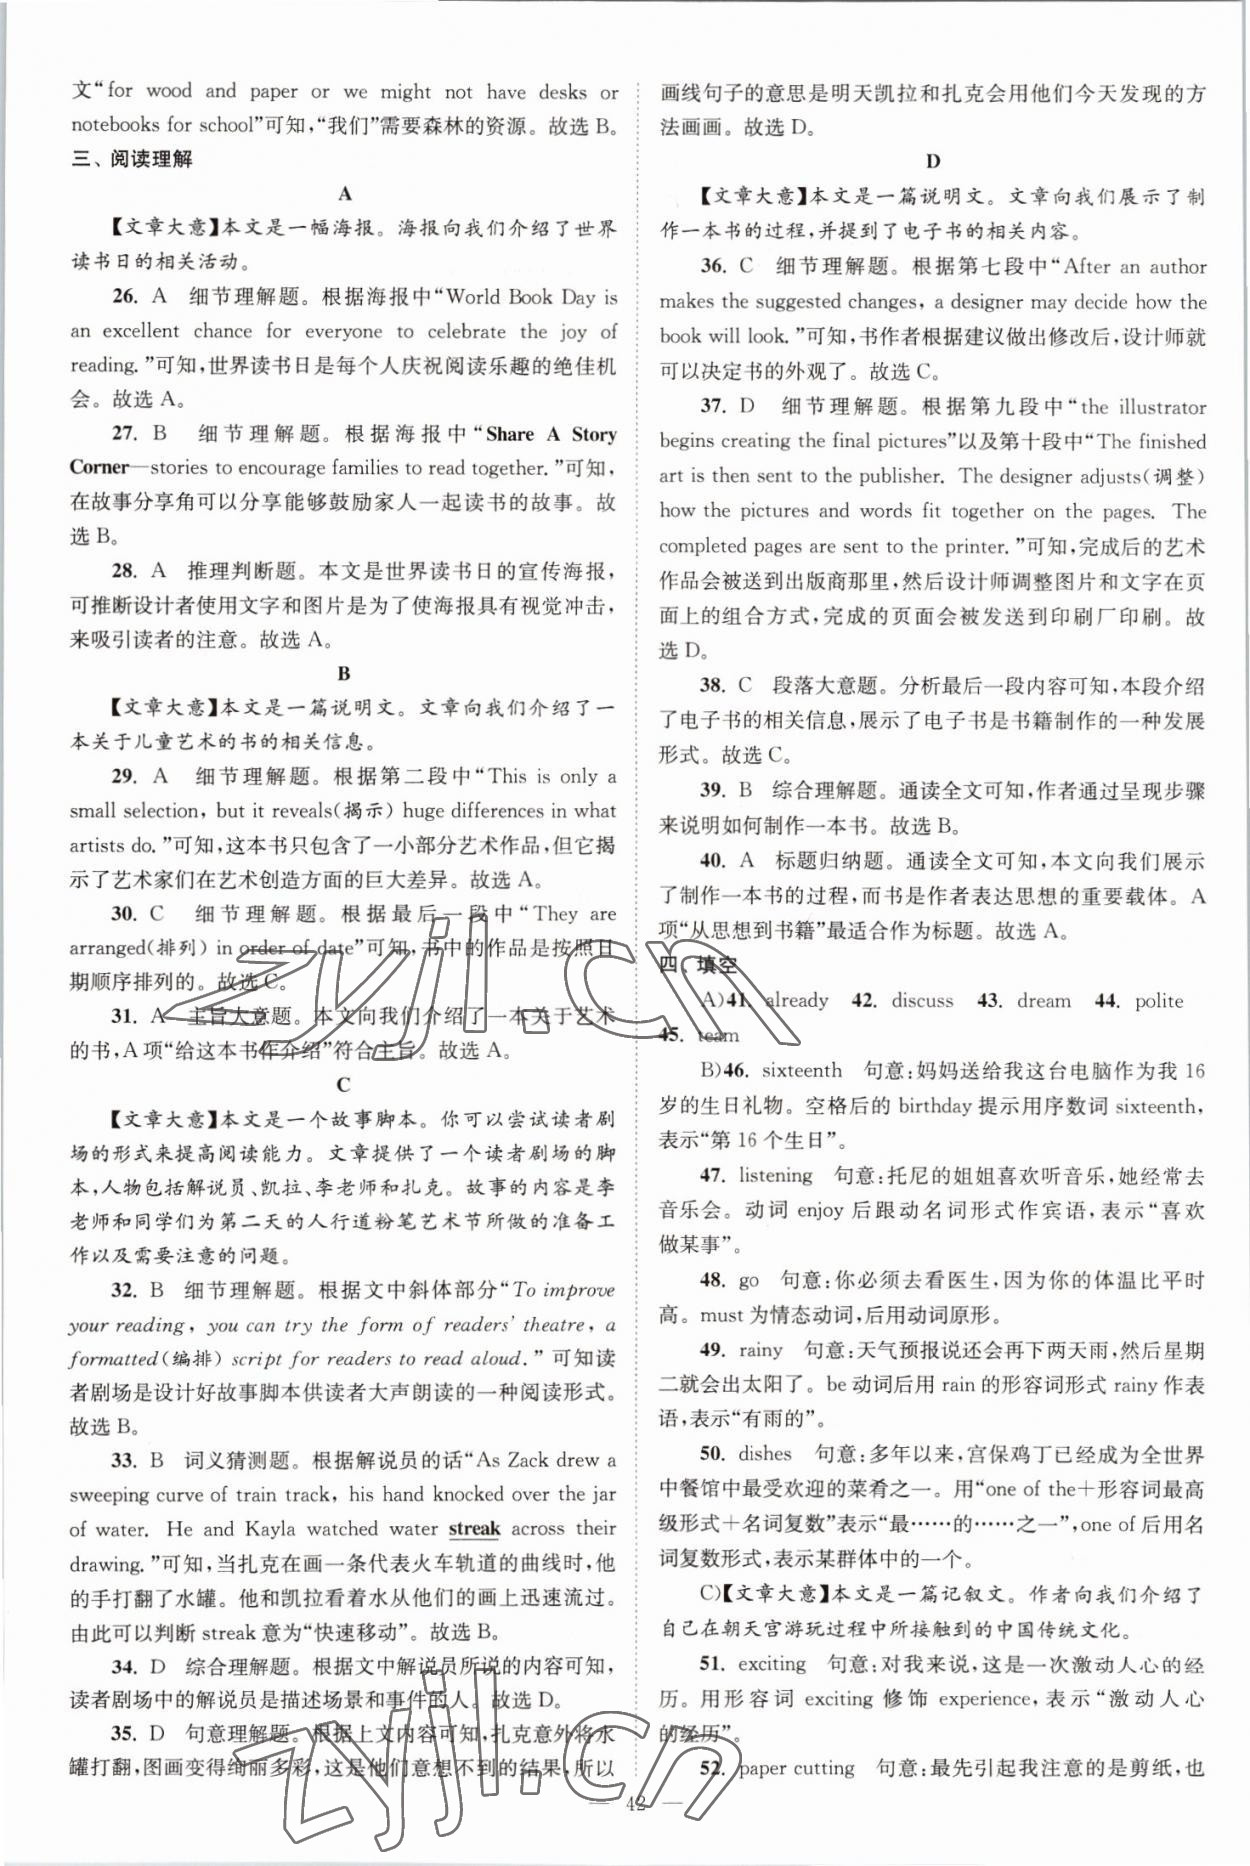 文“for wood and paper or we might not have desks or
notebooks for school”可知,“我们”需要森林的资源。故选 B。
三、阅读理解
A
【文章大意】本文是一幅海报。海报向我们介绍了世界
读书日的相关活动。
26. A 细节理解题。根据海报中“World Book Day is
an excellent chance for everyone to celebrate the joy of
reading. ”可知,世界读书日是每个人庆祝阅读乐趣的绝佳机
会。故选 A。
27. B 细节理解题。根据海报中“Share A Story
Corner—stories to encourage families to read together. ”可知,
在故事分享角可以分享能够鼓励家人一起读书的故事。故
选 B。
28. A 推理判断题。本文是世界读书日的宣传海报,
可推断设计者使用文字和图片是为了使海报具有视觉冲击,
来吸引读者的注意。故选 A。
B
【文章大意】本文是一篇说明文。文章向我们介绍了一
本关于儿童艺术的书的相关信息。
29. A 细节理解题。根据第二段中“This is only a
small selection, but it reveals(揭示) huge differences in what
artists do. ”可知,这本书只包含了一小部分艺术作品,但它揭
示了艺术家们在艺术创造方面的巨大差异。故选 A。
30. C 细节理解题。根据最后一段中“They are
arranged(排列) in order of date”可知,书中的作品是按照日
期顺序排列的。故选 C。
31. A 主旨大意题。本文向我们介绍了一本关于艺术
的书,A 项“给这本书作介绍”符合主旨。故选 A。
C
【文章大意】本文是一个故事脚本。你可以尝试读者剧
场的形式来提高阅读能力。文章提供了一个读者剧场的脚
本,人物包括解说员、凯拉、李老师和扎克。故事的内容是李
老师和同学们为第二天的人行道粉笔艺术节所做的准备工
作以及需要注意的问题。
32. B 细节理解题。根据文中斜体部分“To improve
your reading, you can try the form of readers' theatre, a
formatted(编排) script for readers to read aloud. ” 可知读
者剧场是设计好故事脚本供读者大声朗读的一种阅读形式。
故选 B。
33. B 词义猜测题。根据解说员的话“As Zack drew a
sweeping curve of train track, his hand knocked over the jar
of water. He and Kayla watched water streak across their
drawing. ”可知,当扎克在画一条代表火车轨道的曲线时,他
的手打翻了水罐。他和凯拉看着水从他们的画上快速流过。
由此可以判断 streak 意为“快速移动”。故选 B。
34. D 综合理解题。根据文中解说员所说的内容可知,
读者剧场中的解说员是描述场景和事件的人。故选 D。
35. D 句意理解题。根据上文内容可知,扎克意外将水
罐打翻,图画变得绚丽多彩,这是他们意想不到的结果,所以
画线句子的意思是明天凯拉和扎克会用他们今天发现的方
法画画。故选 D。
D
【文章大意】本文是一篇说明文。文章向我们展示了制
作一本书的过程,并提到了电子书的相关内容。
36. C 细节理解题。根据第七段中“After an author
makes the suggested changes, a designer may decide how the
book will look. ”可知,书作者根据建议做出修改后,设计师就
可以决定书的外观了。故选 C。
37. D 细节理解题。根据第九段中“the illustrator
begins creating the final pictures”以及第十段中“The finished
art is then sent to the publisher. The designer adjusts(调整)
how the pictures and words fit together on the pages. The
completed pages are sent to the printer. ”可知,完成后的艺术
作品会被送到出版商那里,然后设计师调整图片和文字在页
面上的组合方式,完成的页面会被发送到印刷厂印刷。故
选 D。
38. C 段落大意题。分析最后一段内容可知,本段介绍
了电子书的相关信息,展示了电子书是书籍制作的一种发展
形式。故选 C。
39. B 综合理解题。通读全文可知,作者通过呈现步骤
来说明如何制作一本书。故选 B。
40. A 标题归纳题。通读全文可知,本文向我们展示
了制作一本书的过程,而书是作者表达思想的重要载体。A
项“从思想到书籍”最适合作为标题。故选 A。
四、填空
A)41. already 42. discuss 43. dream 44. polite
45. team
B)46. sixteenth 句意:妈妈送给我这台电脑作为我 16
岁的生日礼物。空格后的 birthday 提示用序数词 sixteenth,
表示“第 16 个生日”。
47. listening 句意:托尼的姐姐喜欢听音乐,她经常去
音乐会。动词 enjoy 后跟动名词形式作宾语,表示“喜欢
做某事”。
48. go 句意:你必须去看医生,因为你的体温比平时
高。must 为情态动词,后用动词原形。
49. rainy 句意:天气预报说还会再下两天雨,然后星期
二就会出太阳了。be 动词后用 rain 的形容词形式 rainy 作表
语,表示“有雨的”。
50. dishes 句意:多年以来,宫保鸡丁已经成为全世界
中餐馆中最受欢迎的菜肴之一。用“one of the＋形容词最高
级形式＋名词复数”表示“最……的……之一”,one of 后用名
词复数形式,表示某群体中的一个。
C)【文章大意】本文是一篇记叙文。作者向我们介绍了
自己在朝天宫游玩过程中所接触到的中国传统文化。
51. exciting 句意:对我来说,这是一次激动人心的经
历。用形容词 exciting 修饰 experience,表示“激动人心
的经历”。
52. paper cutting 句意:最先引起我注意的是剪纸,也
— 42 —
zyjl.cn
zyjl.cn